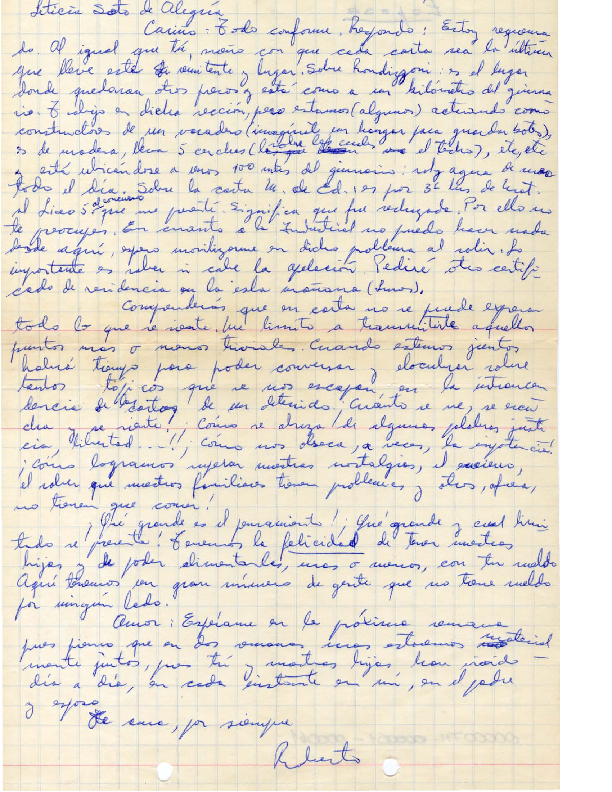 Leticia Soto de Alegría
Cariño: Todo conforme. Respondo: Estoy requeri
do. Al igual que tú, sueño con que cada carta sea la última
que lleve este remitente y lugar. Sobre Rondizzoni: es el lugar
donde quedaran otros presos y está como a un kilómetro del gimna
sio. Trabajo en dicha sección, pero estamos (algunos) actuando como
constructores de un varadero (imagínate un hangar para guardar botes),
es de madera, lleva 5 cerchas (sobre las cuales va el techo), etc, etc
y está ubicándose a unos 100 mts del gimnasio: hay agua de mar
todo el día. Sobre la carta M. de Ed.: es por 3 hrs de Cast.
al Liceo 5 al concurso que me presenté. Significa que fue rechazada. Por ello no
te preocupes. En cuanto a la Industrial no puedo hacer nada
desde aquí, espero movilizarme en dicho problema al salir. Lo
importante es saber si cabe la apelación. Pediré otro certifi-
cado de residencia en la isla mañana (Lunes).
Comprenderás que en carta no se puede expresar
todo lo que se siente. Me limito a transmitirte aquellos
puntos mas o menos triviales. Cuando estemos juntos
habrá tiempo para poder conversar y elocubrar sobre
tantos tópicos que se nos escapan en la intrascen
dencia de las cartas de un detenido. ¡Cuánto se ve, se escu
cha y se siente! ¡Cómo se abusa! de algunas palabras justi
cia, libertad ...!! ¡Cómo nos obseca, a veces, la impotencia!
¡Cómo logramos superar nuestras nostalgias, el encierro,
el saber que nuestros familiares tienen problemas y otros, afuera,
no tienen que comer!
¡Qué grande es el pensamiento! ¡Qué grande y cual limi-
tado se presenta! Tenemos la felicidad de tener nuestras
hijas y de poder alimentarlas, mas o menos, con tu sueldo
Aquí tenemos un gran número de gente que no tiene sueldo
por ningún lado.
Amor: Espérame en la próxima semana
pues pienso que en dos semanas mas estaremos material
mente juntos, pues tú y nuestras hijas han vivido
día a día, en cada instante en mí, en el padre
y esposo
Te ama, por siempre
Roberto